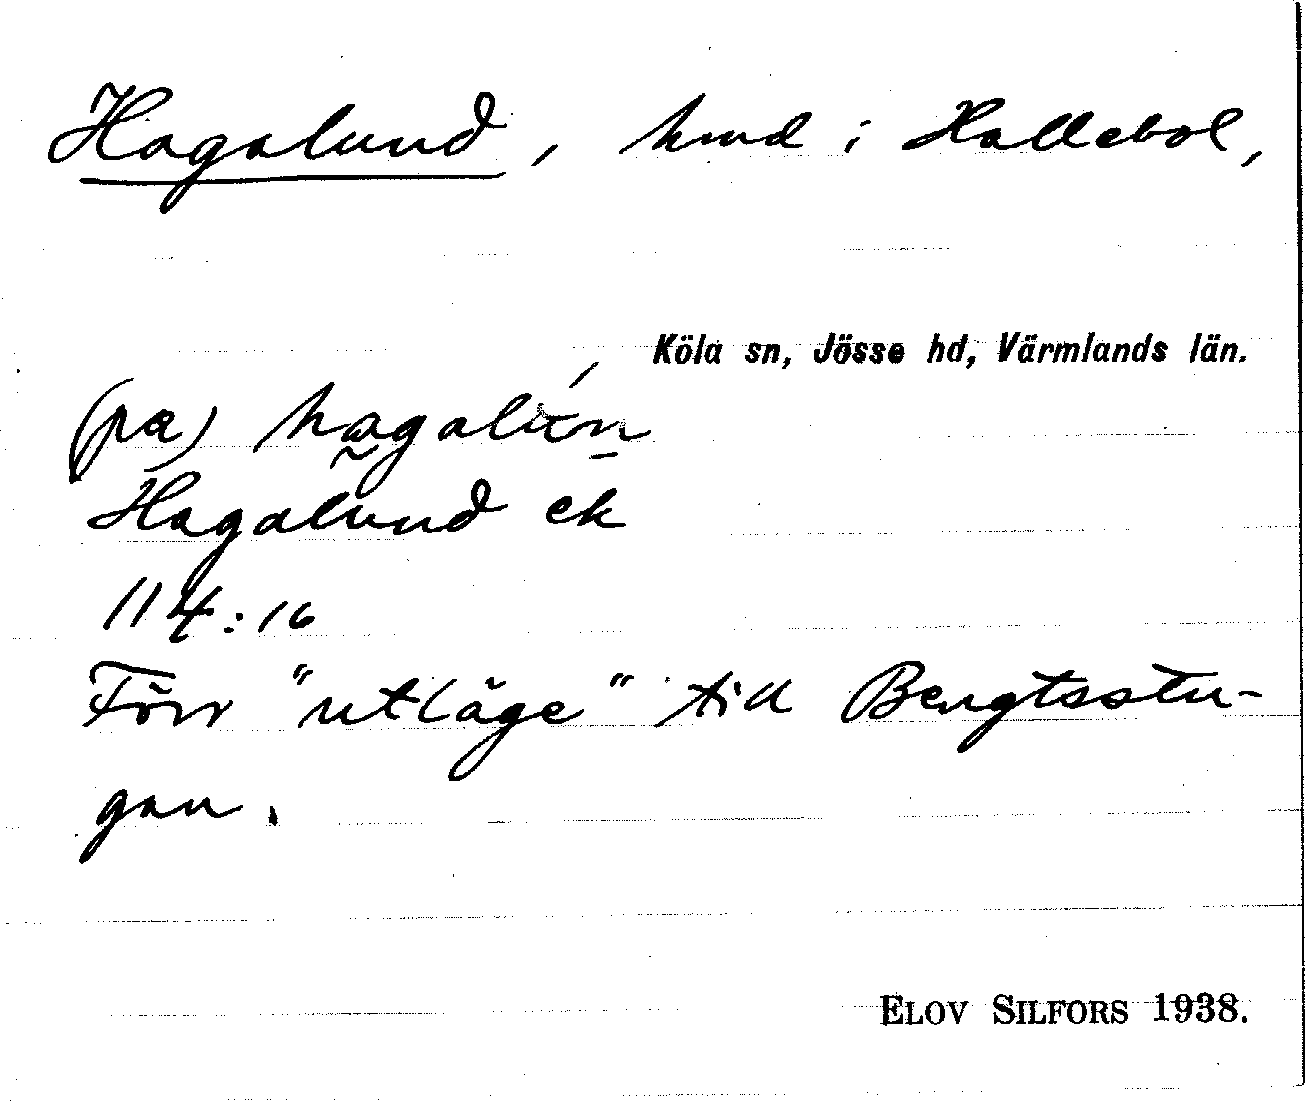 Hagalund, hmd i Hallebol,
Köla sn, Jösse hd, Värmlands län.
(pa) hagalun
Hagalund ek
114:16
Förr "utläge" till Bengtsstu-
gan.
ELOV SILFORS 1938.